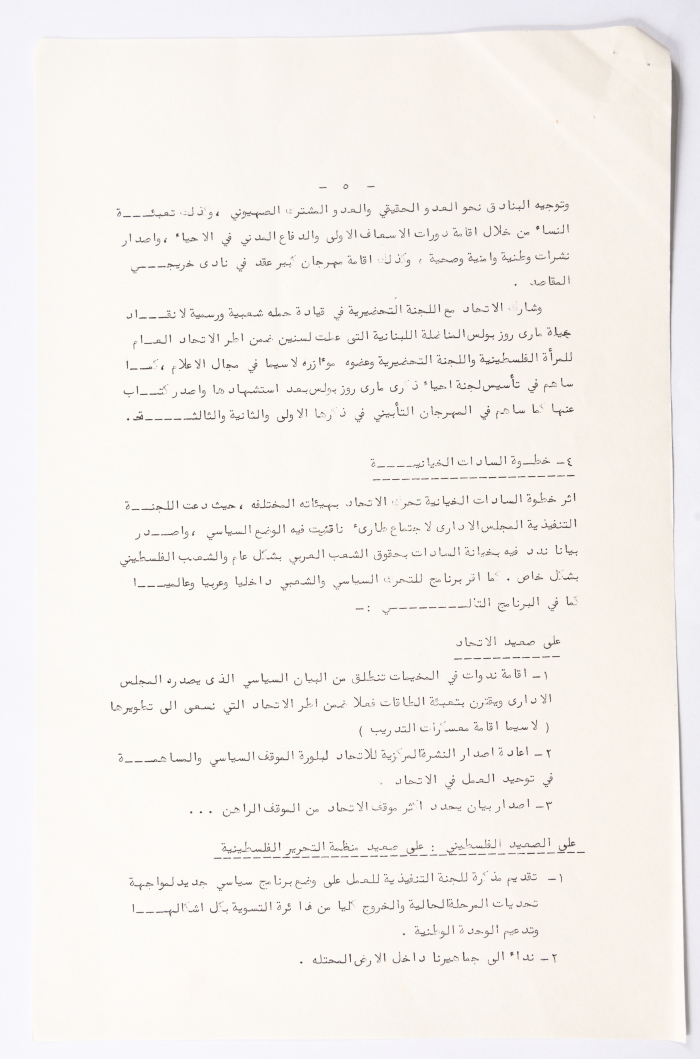 - ٥ -
وتوجيه البنادق نحو العدو الحقيقي والعدو المشترك الصهيوني ، وكذلك تعبئـــة
النساء من خلال اقامة دورات الاسعاف الاولى والدفاع المدني في الاحياء ، واصدار
نشرات وطنية وامنية وصحية ، وكذلك اقامة مهرجان كبير عقد في نادى خريجـــي
المقاصد .
وشارك الاتحاد مع اللجنة التحضيرية في قيادة حمله شعبية ورسمية لانقـــاد
حياة مارى روز بولس المناضلة اللبنانية التى عملت لسنين ضمن اطر الاتحاد العـام
للمرأة الفلسطينية واللجنة التحضيرية وعضوه موءازره لاسيما في مجال الاعلام ، كمـــا
ساهم في تأسيس لجنة احياء ذكرى مارى روز بولس بعد استشهادها واصدر كتـــاب
عنها كما ساهم في المهرجان التأبيني في ذكرها الاولى والثانية والثالثـــــة .
٤- خطـوة السادات الخيانيـــــة
اثر خطوة السادات الخيانية تحرك الاتحاد بهيئاته المختلفه ، حيث دعت اللجنـــة
التنفيذية المجلس الادارى لاجتماع طارىء ناقشت فيه الوضع السياسي ، واصـــدر
بيانا ندد فيه بخيانة السادات بحقوق الشعب العربي بشكل عام والشعب الفلسطيني
بشكل خاص . كما اقر برنامج للتحرك السياسي والشعبي داخليا وعربيا وعالميـــا
كما في البرنامج التالـــــــي :-
على صعيد الاتحاد
١- اقامة ندوات في المخيمات تنطلق من البيان السياسي الذى يصدره المجلس
الادارى ويقترن بتعبئة الطاقات فعلا ضمن اطر الاتحاد التي نسعى الى تطويرها
( لاسيما اقامة معسكرات التدريب )
٢- اعادة اصدار النشرة المركزية للاتحاد لبلورة الموقف السياسي والمساهمـــة
في توحيد العمل في الاتحاد .
٣- اصدار بيان يحدد اكثر موقف الاتحاد من الموقف الراهن ...
على الصعيد الفلسطيني : على صعيد منظمة التحرير الفلسطينية
١- تقديم مذكرة للجنة التنفيذية للعمل على وضع برنامج سياسي جديد لمواجهة
تحديات المرحلة الحالية والخروج كليا من دائرة التسوية بكل اشكالهـــا
وتدعيم الوحدة الوطنية .
٢- نداء الى جماهيرنا داخل الارض المحتله .